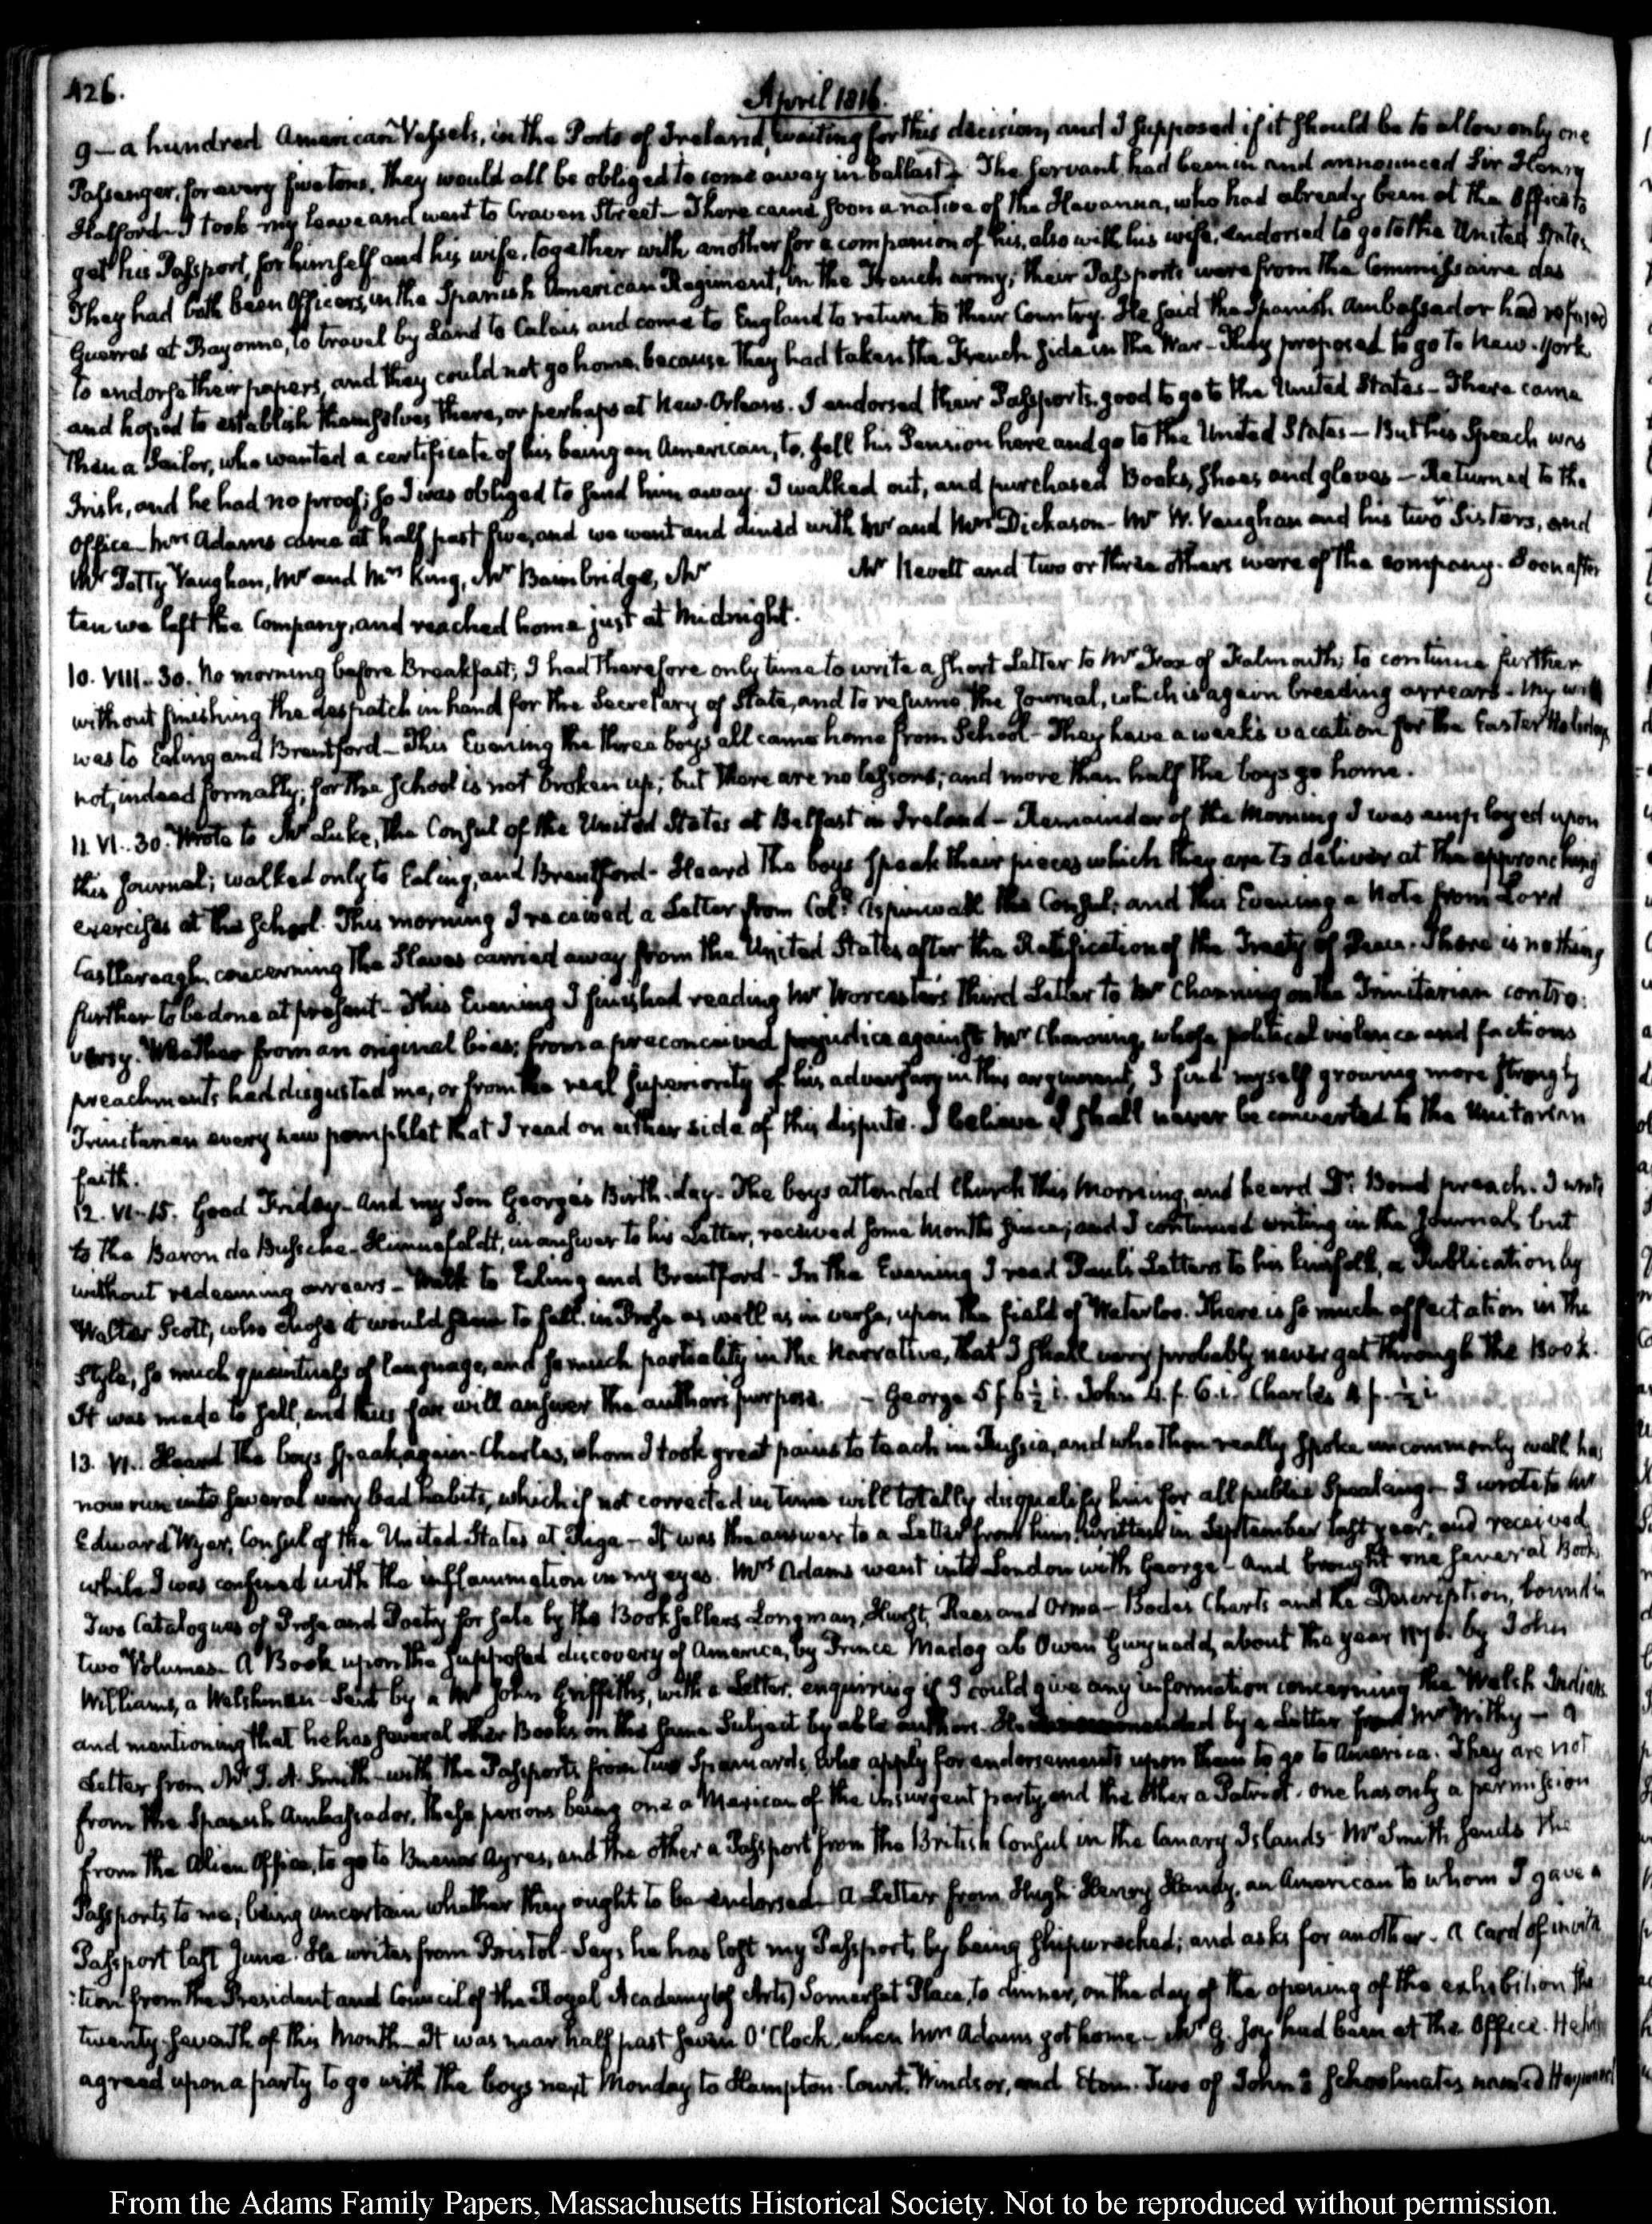 426.
April 1816.
9 — a hundred American Vessels, in the Ports of Ireland, waiting for this decision, and I supposed if it should be to allow only one
Passenger, for every five tons, they would all be obliged to come away in ballast. The servant, had been in and announced Sir Henry
Halford. I took my leave and went to Craven Street — There came soon a native of the Havanna, who had already been at the Office to
get his Passport, for himself and his wife, together with another for a companion of his, also with his wife, endorsed to go to the United States.
They had both been Officers, in the Spanish American Regiment, in the French army; their Passports were from the Commissaire des
Guerres at Bayonne, to travel by Land to Calais and come to England to return to their Country. He said the Spanish Ambassador had refused
to endorse their papers, and they could not go home, because they had taken the French side in the War — They proposed to go to New-York
and hoped to establish themselves there, or perhaps at New-Orleans. I endorsed their Passports, good to go to the United States — There came
then a Sailor, who wanted a certificate of his being an American, to sell his Pension here and go to the United States — But his Speech was
Irish, and he had no proof; so I was obliged to send him away. I walked out, and purchased Books, Shoes and gloves — Returned to the
Office — Mrs Adams came at half past five, and we went and dined with Mr and Mrs Dickason — Mr W. Vaughan and his two Sisters, and
Mr Petty Vaughan, Mr and Mrs King, Mr Bainbridge, Mr Mr and two or three others were of the company. Soon after
ten we left the Company, and reached home just at Midnight.
10. VIII.. 30. No morning before Breakfast; I had therefore only time to write a short Letter to Mr Fox of Falmouth; to continue further
without finishing the despatch in hand for the Secretary of State, and to resume the Journal, which is again breeding arrears — My walk
was to Ealing and Brentford — This Evening the three boys all came home from School — They have a week's vacation for the Easter Holidays
not, indeed formally; for the School is not broken up; but there are no lessons; and more than half the boys go home.
11. VI.. 30. Wrote to Mr Luke, the Consul of the United States at Belfast in Ireland — Remainder of the Morning I was employed upon
this Journal; walked only to Ealing, and Brentford — Heard the boys speak their pieces which they are to deliver at the approaching
exercises at the School. This morning I received a Letter from Coll. Aspinwall the Consul; and this Evening a Note from Lord
Castlereagh, concerning the Slaves carried away from the United States after the Ratification of the Treaty of Peace. There is nothing
further to be done at present — This Evening I finished reading Mr Worcester's third Letter to Mr Channing on the Trinitarian contro:
versy. Whether from an original bias; from a preconceived prejudice against Mr Channing, whose political violence and factious
preachments had disgusted me, or from the real superiority of his adversary in this argument, I find myself growing more strongly
Trinitarian every new pamphlet that I read on either side of this dispute. I believe I shall never be converted to the Unitarian
faith.
12. VI.. 15. Good Friday — And my Son George's Birth-day. The boys attended Church this Morning, and heard Dr Bond preach. I wrote
to the Baron de Bussche-Hünnefeldt, in answer to his Letter, received some Months since; and I continued writing in the Journal, but
without redeeming arrears — Walk to Ealing and Brentford — In the Evening I read Paul's Letters to his kinsfolk, a Publication by
Walter Scott, who chose it would seem to fall, in Prose as well as in verse, upon the field of Waterloo. There is so much affectation in the
style, so much quaintness of language, and so much partiality in the Narrative, that I shall very probably never get through the Book.
It was made to sell, and thus far will answer the author's purpose. — George 5 f. 6½ i. John 4. f. 6. i. Charles 4 f. — ½ i.
13. VI.. Heard the boys speak, again — Charles, whom I took great pains to teach in Russia, and who then really spoke uncommonly well has
now run into several very bad habits, which if not corrected in time will totally disqualify him for all public Speaking — I wrote to Mr
Edward Wyer, Consul of the United States at Riga — It was the answer to a Letter from him, written in September last year; and received
while I was confined with the inflammation in my eyes. Mrs Adams went into London with George — And brought me several Books
Two Catalogues of Prose and Poetry for sale by the Booksellers Longman, Hurst, Rees and Orme — Bode's Charts and the Description, bound in
two Volumes — A Book upon the supposed discovery of America, by Prince Madog ab Owen Gwynedd, about the year 1170. by John
Williams, a Welshman — Sent by a Mr John Griffiths, with a Letter, enquiring if I could give any information concerning the Welsh Indians
and mentioning that he has several other Books on the same Subject by able authors. He recommended by a Letter from Mr Withy — A
Letter from Mr J. A. Smith — with the Passports from two Spaniards, who apply for endorsements upon them to go to America. They are not
from the Spanish Ambassador, these persons being one a Mexican of the insurgent party, and the other a Patriot. one has only a permission
from the Alien Office, to go to Buenos Ayres, and the other a Passport from the British Consul in the Canary Islands — Mr Smith sends the
Passports to me, being uncertain whether they ought to be endorsed — A Letter from Hugh Henry Handy, an American to whom I gave a
Passport last June. He writes from Bristol — Says he has lost my Passport, by being shipwrecked; and asks for another. A Card of invita
:tion from the President and Council of the Royal Academy (of Arts) Somerset Place, to dinner, on the day of the opening of the exhibition the
twenty-seventh of this Month — It was near half past seven O'Clock, when Mrs Adams got home — Mr G. Joy had been at the Office. He has
agreed upon a party to go with the boys next Monday to Hampton-Court, Windsor, and Eton. Two of John's Schoolmates, named
From the Adams Family Papers, Massachusetts Historical Society. Not to be reproduced without permission.